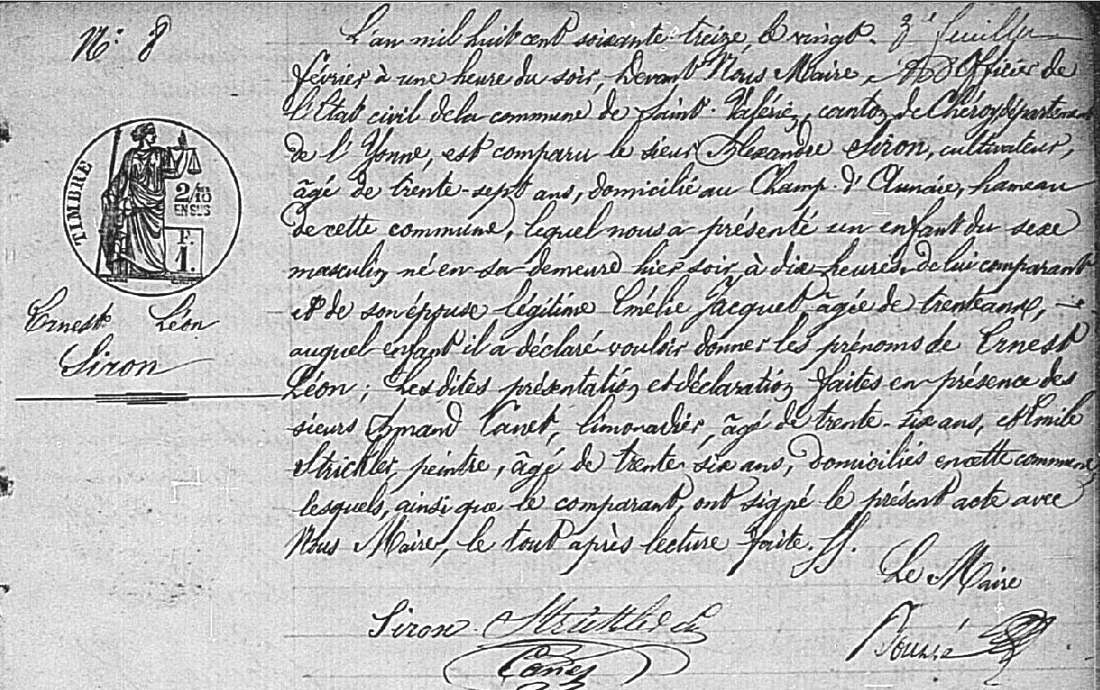 N° 8
3e feuillet
L'an mil huit cent soixante treize, le vingt
février à une heure du soir, Devant Nous Maire, Officier de
l'Etat civil de la commune de Saint-Valérien, canton de Chéroy, département
de l'Yonne, est comparu le sieur Alexandre Siron, cultivateur,
âgé de trente-sept ans, domicilié au Champ d'Aunaie, hameau
de cette commune, lequel nous a présenté un enfant du sexe
masculin, né en sa demeure hier soir, à dix heures, de lui comparant
et de son épouse légitime Emélie Jacquet, âgée de trente ans,
auquel enfant il a déclaré vouloir donner les prénoms de Ernest
Léon; Les dites présentation et déclaration faites en présence des
sieurs Armand Canet, limonadier, âgé de trente-six ans, et Emile
Strickler, peintre, âgé de trente six ans, domiciliés en cette commune,
lesquels, ainsi que le comparant, ont signé le présent acte avec
Nous Maire, le tout après lecture faite.
TIMBRE
2/10
EN SUS
F.
1.
Ernest Léon
Siron
Le Maire
Siron
Canet